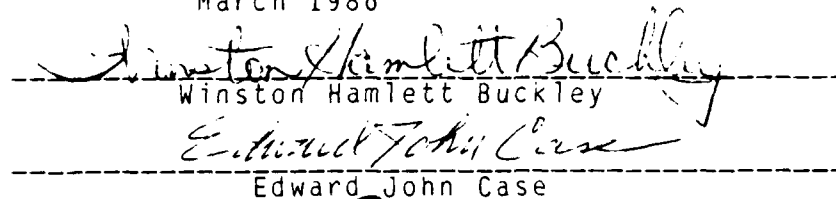 March 1986
Winston Hamlett Buckley
Winston Hamlett Buckley
Edward John Case
Edward John Case